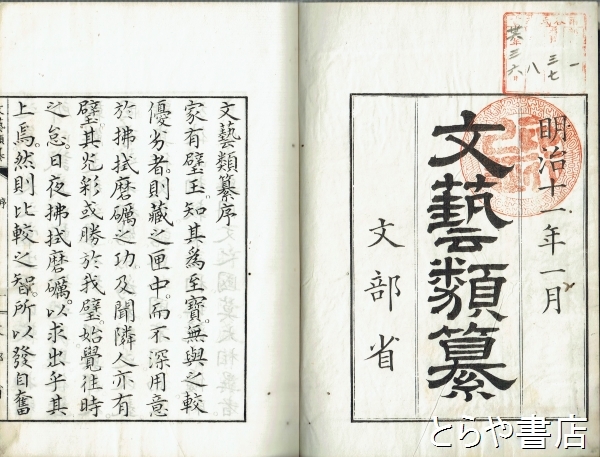 明治十一年一月
文藝類纂
文部省
共三六
八
三七
一
文藝類纂序
家有璧玉。知其爲至寶。無與之較
優劣者。則藏之匣中。而不深用意
於拂拭磨礪之功。及聞隣人亦有
璧其光彩或勝於我璧。始覺往時
之怠。日夜拂拭磨礪。以求出乎其
上焉。然則比較之智。所以發自奮
文藝類纂
序
とらや書店